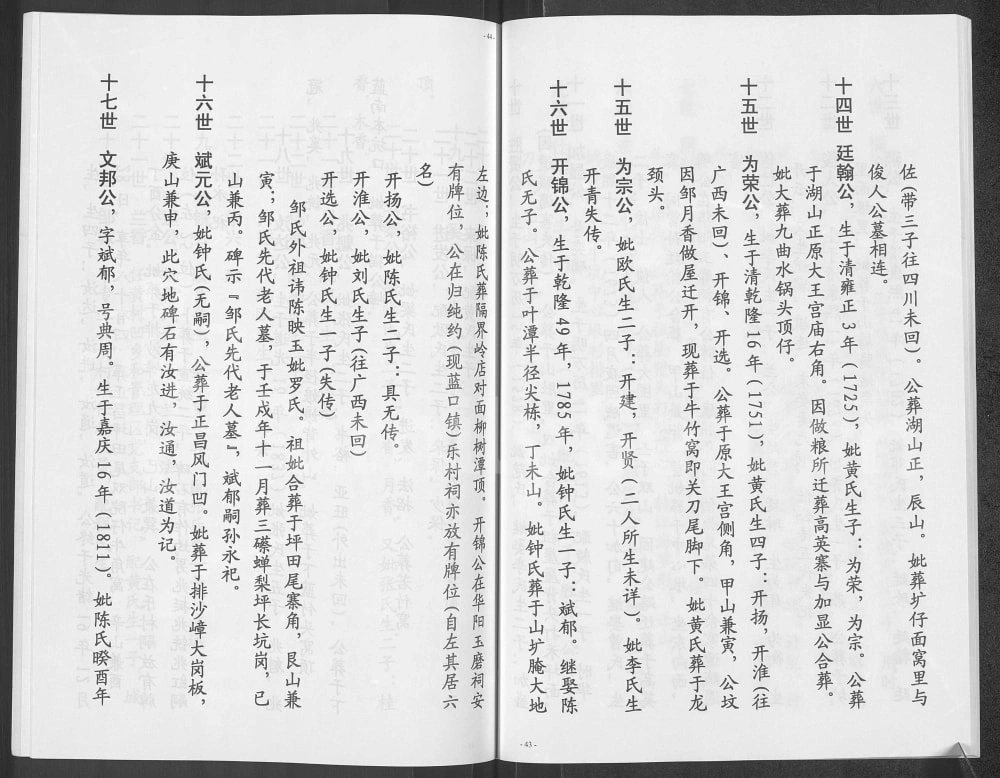 佐(带三子往四川未回)。公葬湖山正，辰山。妣葬圹仔面窝里与
俊人公墓相连。
十四世 廷翰公，生于清雍正3年(1725)，妣黄氏生子：为荣，为宗。公葬
于湖山正原大王宫庙右角。因做粮所迁葬高英寨与加显公合葬。
妣大葬九曲水锅头顶仔。
十五世 为荣公，生于清乾隆16年(1751)，妣黄氏生四子：开扬，开淮(往
广西未回)、开锦、开选。公葬于原大王宫侧角，甲山兼寅，公坟
因邹月香做屋迁开，现葬于牛竹窝即关刀尾脚下。妣黄氏葬于龙
颈头。
十五世 为宗公，妣欧氏生二子：开建，开贤(二人所生未详)。妣李氏生
开青失传。
十六世 开锦公，生于乾隆49年，1785年，妣钟氏生一子：斌郁。继娶陈
氏无子。公葬于叶潭半径尖栋，丁未山。妣钟氏葬于山圹腌大地
-43-
-44-
左边；妣陈氏葬隔界岭店对面柳树潭顶。开锦公在华阳玉磨祠安
有牌位，公在归纯约(现蓝口镇)乐村祠亦放有牌位(自左其居六
名)
开扬公，妣陈氏生二子：具无传。
开淮公，妣刘氏生子(往广西未回)
开选公，妣钟氏生一子(失传)
邹氏外祖讳陈映玉妣罗氏。祖妣合葬于坪田尾寨角，艮山兼
寅；邹氏先代老人墓，于壬戍年十一月葬三磜蝉梨坪长坑岗，巳
山兼丙。碑示『邹氏先代老人墓』，斌郁嗣孙永祀。
十六世 斌元公，妣钟氏(无嗣)，公葬于正昌风门凹。妣葬于排沙嶂大岗板，
庚山兼申，此穴地碑石有汝进，汝通，汝道为记。
十七世 文邦公，字斌郁，号典周。生于嘉庆16年(1811)。妣陈氏暌酉年